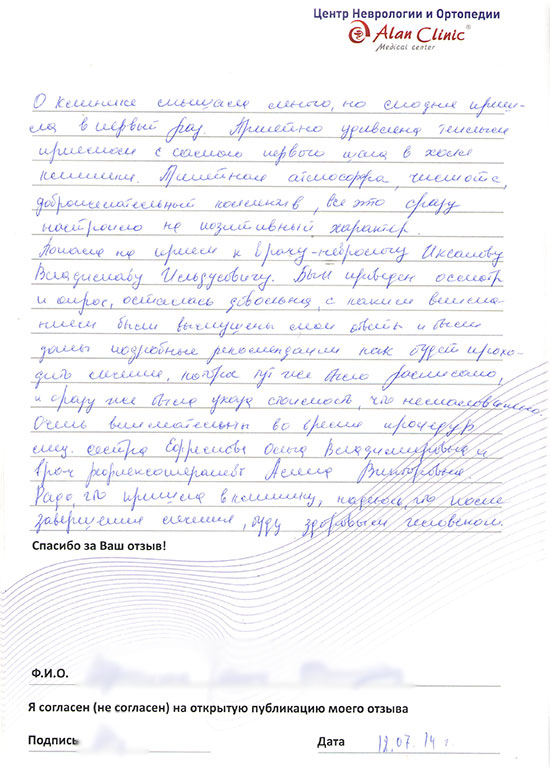 Центр Неврологии и Ортопедии
Alan Clinic®
Medical center
О клинике слышала много, но сегодня приш-
ла в первый раз. Приятно удивлена теплым
приемом с самого первого шага в холл
клиники. Приятная атмосфера, чистота,
доброжелательный коллектив, все это сразу
настроило на позитивный характер.
Попала на прием к врачу-неврологу Иксанову
Владиславу Ильдусовичу. Был приведен осмотр
и опрос, осталась довольна, с каким внима-
нием были выслушаны мои ответы и были
даны подробные рекомендации как будет прохо-
дить лечение, которое тут же было расписано,
и сразу же была указа стоимость, что немаловажно.
Очень внимательны во время процедур
мед. сестра Ефремова Ольга Владимировна и
врач рефлексотерапевт Алена Викторовна.
Рада, что пришла в клинику, надеюсь, что после
завершения лечения, буду здоровым человеком.
Спасибо за Ваш отзыв!
Ф.И.О.
Я согласен (не согласен) на открытую публикацию моего отзыва
Подпись Дата 18.07.14 г.